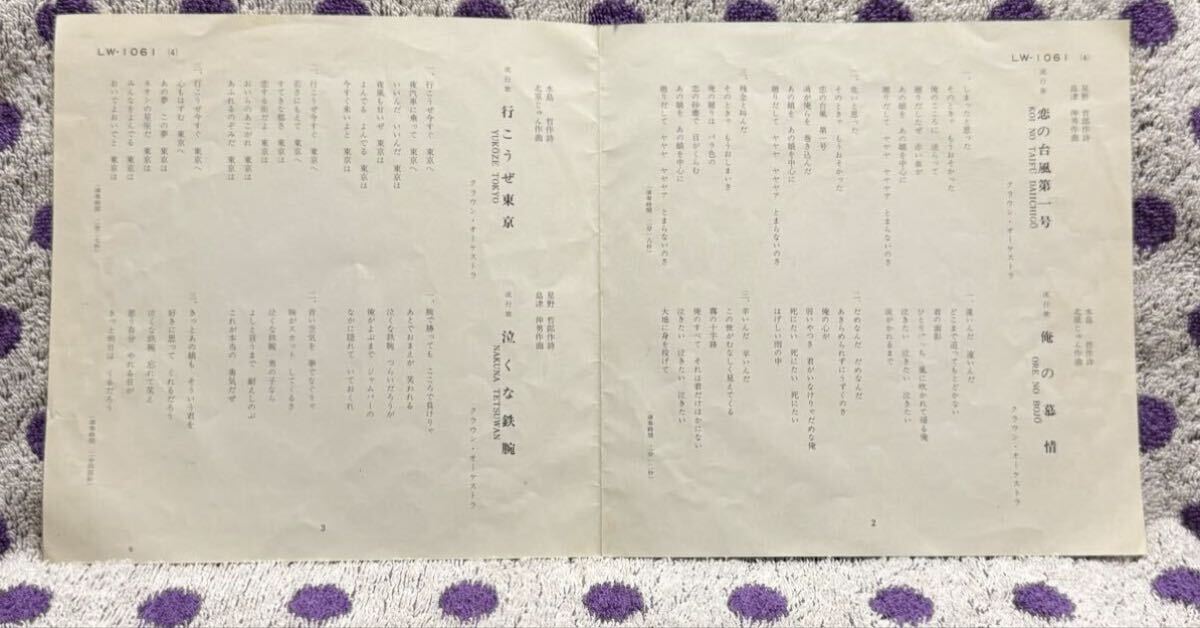 LW-1061 (4)
星野 哲郎作詩
島津 伸男作曲
流行歌 恋の台風第一号
KOI NO TAIFU DAIICHIGO
クラウン・オーケストラ
一、しまったと思った
そのときゃ もうおそかった
俺のこころに 逆らって
踊りだしたぜ 赤い血が
あの娘を あの娘を中心に
踊りだして ヤヤヤ ヤヤヤヤ とまらないのさ
二、危いと思った
そのときゃ もうおそかった
恋の台風 第一号
渦が俺らを 巻き込んだ
あの娘を あの娘を中心に
踊りだして ヤヤヤ ヤヤヤヤ とまらないのさ
三、残念と叫んだ
そのときゃ もうおしまいさ
俺の踊りは バラ色の
恋の砂塵で 日がくらむ
あの娘を あの娘を中心に
踊りだして ヤヤヤ ヤヤヤヤ とまらないのさ
水島 哲作詩
北原じゅん作曲
流行歌 俺の慕情
ORE NO BOJO
クラウン・オーケストラ
一、遠いんだ 遠いんだ
どこまで追ってもとどかない
君の面影
ひとりぼっち 風に吹かれて帰る俺
泣きたい 泣きたい 泣きたい
涙がかれるまで
二、だめなんだ だめなんだ
あきらめられずにうずくのさ
俺の心が
弱いやつさ 君がいなけりゃだめな俺
死にたい 死にたい 死にたい
はげしい雨の中
三、辛いんだ 辛いんだ
この世がむなしく見えてくる
霧の十字路
俺のすべて それは君だけほかにない
泣きたい 泣きたい 泣きたい
大地に身を投げて
2
LW-1061 (4)
水島 哲作詩
北原じゅん作曲
流行歌 行こうぜ東京
YUKOZE TOKYO
クラウン・オーケストラ
一、行こうぜ今すぐ 東京へ
夜汽車に乗って 東京へ
いいんだ いいんだ 東京は
夜風も甘いぜ 東京は
よんでる よんでる 東京は
今すぐ来いよと 東京は
二、行こうぜ今すぐ 東京へ
若さにもえて 東京へ
すてきな都さ 東京は
恋する街だよ 東京は
おいらのあこがれ 東京は
あふれるのぞみだ 東京は
三、行こうぜ今すぐ 東京へ
心もはずむ 東京へ
あの夢 この夢 東京は
ネオンの星座だ 東京は
みんなをよんでる 東京は
おいでよおいでと 東京は
星野 哲郎作詩
島津 伸男作曲
流行歌 泣くな鉄腕
NAKUNA TETSUWAN
クラウン・オーケストラ
一、腕で勝っても こころで負けりゃ
あとでおまえが 笑われる
泣くな鉄腕 つらいだろうが
俺がよぶまで ジャムパーの
なかに隠れて いておくれ
二、青い空気を 拳でなぐりゃ
胸がスカット してくるさ
泣くな鉄腕 男の子なら
よしと言うまで 耐えしのぶ
これが本当の 勇気だぜ
三、きっとあの娘も そういう君を
好きに思って くれるだろう
泣くな鉄腕 忘れて笑え
思う存分 やれる日が
きっと明日は くるだろう
3